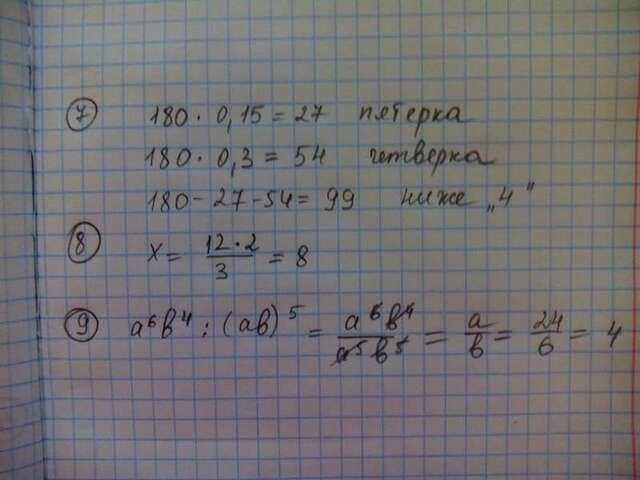 7 180 · 0,15 = 27 пятерка
180 · 0,3 = 54 четверка
180 - 27 - 54 = 99 ниже „4"
8 x = 12·2/3 = 8
9 a⁶b⁴ : (ab)⁵ = a⁶b⁴/a⁵b⁵ = a/b = 24/6 = 4